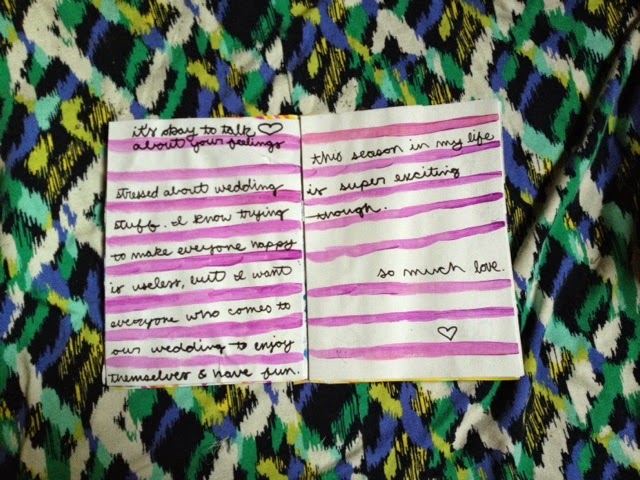 it's okay to talk ♡
about your feelings
stressed about wedding
stuff. I know trying
to make everyone happy
is useless, but I want
everyone who comes to
our wedding to enjoy
themselves & have fun.
this season in my life
is super exciting
though.
so much love.
♡